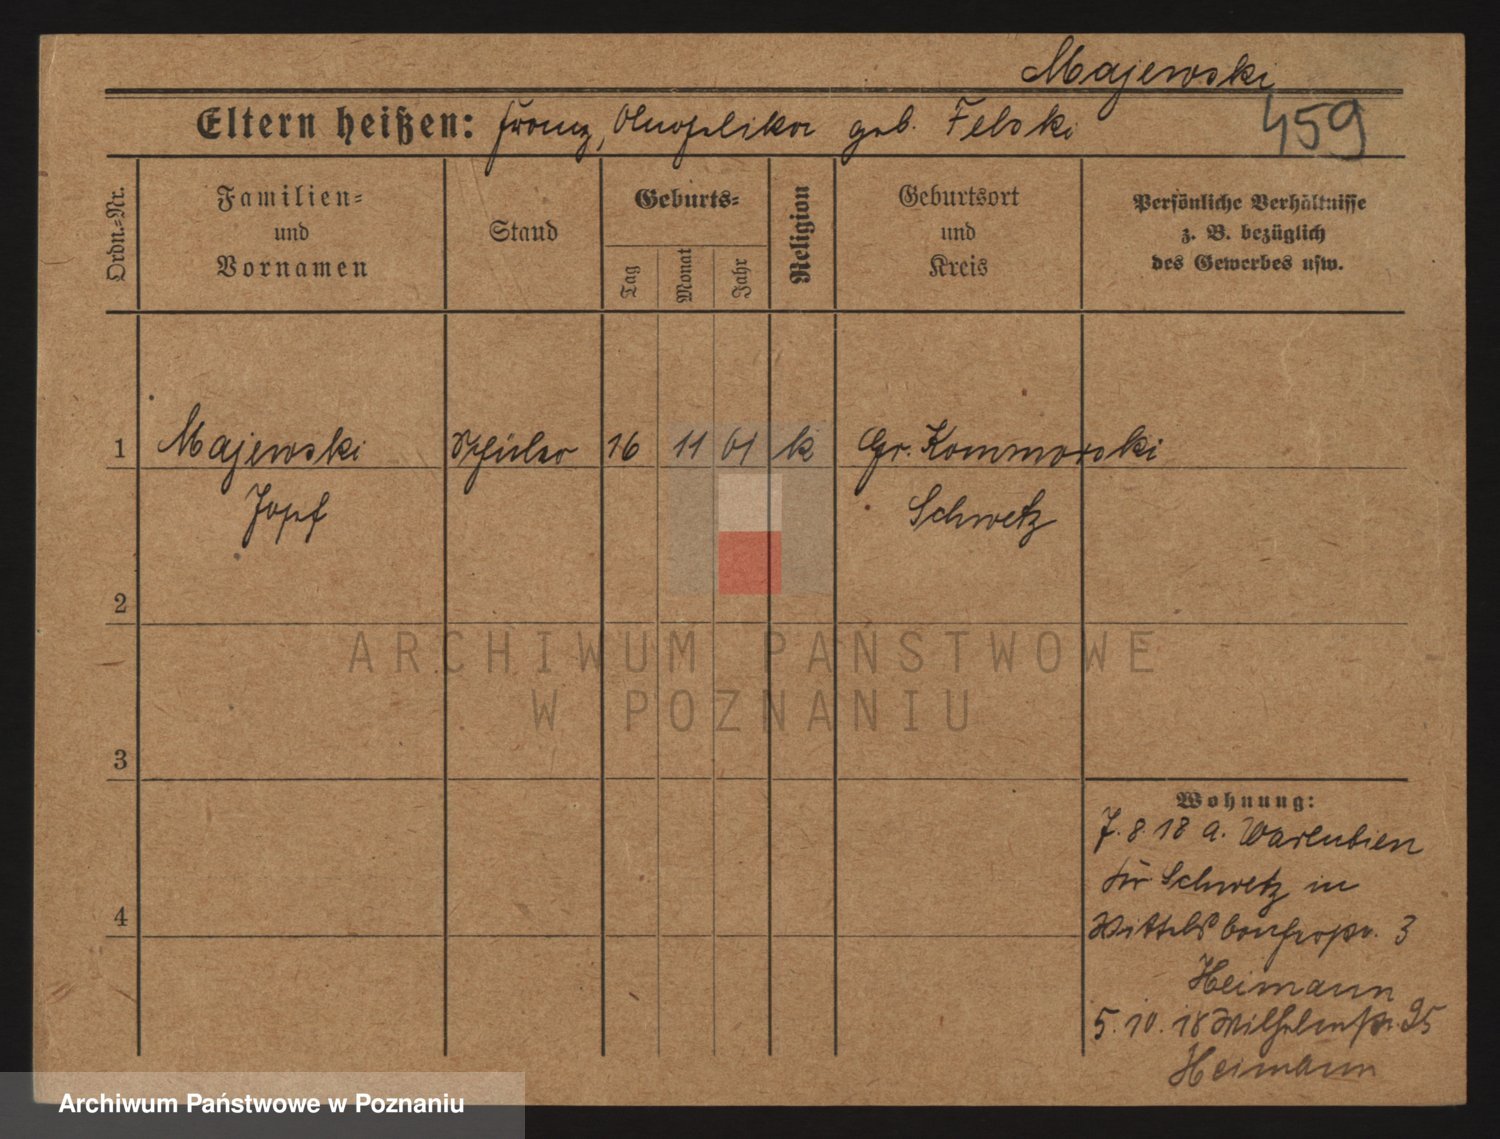 Majewski
Eltern heißen: Franz, Angelika geb. Felski
459
Ordn.-Nr.
Familien-
und
Vornamen
Stand
Geburts-
Tag
Monat
Jahr
Religion
Geburtsort
und
Kreis
Persönliche Verhältnisse
z. B. bezüglich
des Gewerbes usw.
1 Majewski Schüler 16 11 01 k Gr. Kommorski
Josef Schwetz
2
ARCHIWUM PAŃSTWOWE
W POZNANIU
3
Wohnung:
7. 8. 18 a. Warlubien
Kr. Schwetz in
3
4
Heimann
5. 10. 18 Wilhelmstr. 25
Heimann
Archiwum Państwowe w Poznaniu